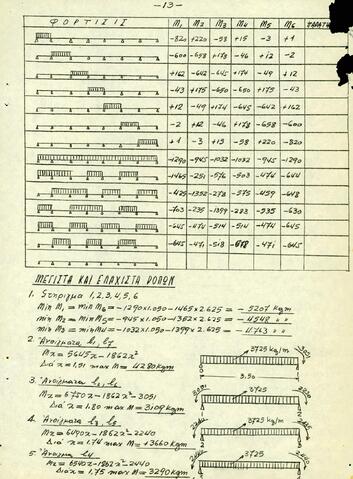 -13-
ΦΟΡΤΙΣΙΣ M1 M2 M3 M4 M5 M6
-820 +220 -58 +15 -3 +1
-600 -658 +178 -46 +12 -2
+162 -642 -645 +174 -49 +12
-43 +175 -650 -650 +175 -43
+12 -49 +174 -645 -642 +162
-2 +12 -46 +178 -658 -600
+1 -3 +15 -58 +220 -820
-1290 -945 -1032 -1032 -945 -1290
-1465 -251 -576 -503 -474 -644
-425 -1352 -278 -575 -459 -648
-703 -235 -1399 -283 -535 -630
-645 -474 -514 -514 -474 -645
-645 -471 -518 -618 -471 -645
ΜΕΓΙΣΤΑ ΚΑΙ ΕΛΑΧΙΣΤΑ ΡΟΠΩΝ
1. Στήριγμα 1, 2, 3, 4, 5, 6
Min M1 = Min M6 = -1290x1.050 -1465x2.625 = -5207 kgm
Min M2 = Min M5 = -945x1.050 -1352x2.625 = -4548 " "
Min M3 = Min M4 = -1032x1.050 -1399x2.625 = -4763 " "
2. Άνοίγματα l1, l7
Mx = 5645x - 1862x²
Διά x = 1.51 max M = 4280 kgm
3725 kg/m
3.50
3. Άνοίγματα
Mx = 6750x - 1862x² - 3051
Διά x = 1.80 max M = 3109 kgm
3725
4. Άνοίγματα
Mx = 6490x - 1862x² - 2240
Διά x = 1.74 max M = +3660 kgm
3725 kg/m
5. Άνοιγμα l4
Mx = 6540x - 1862x² - 2440
x = 1.75 max M = 3290 kgm
3725